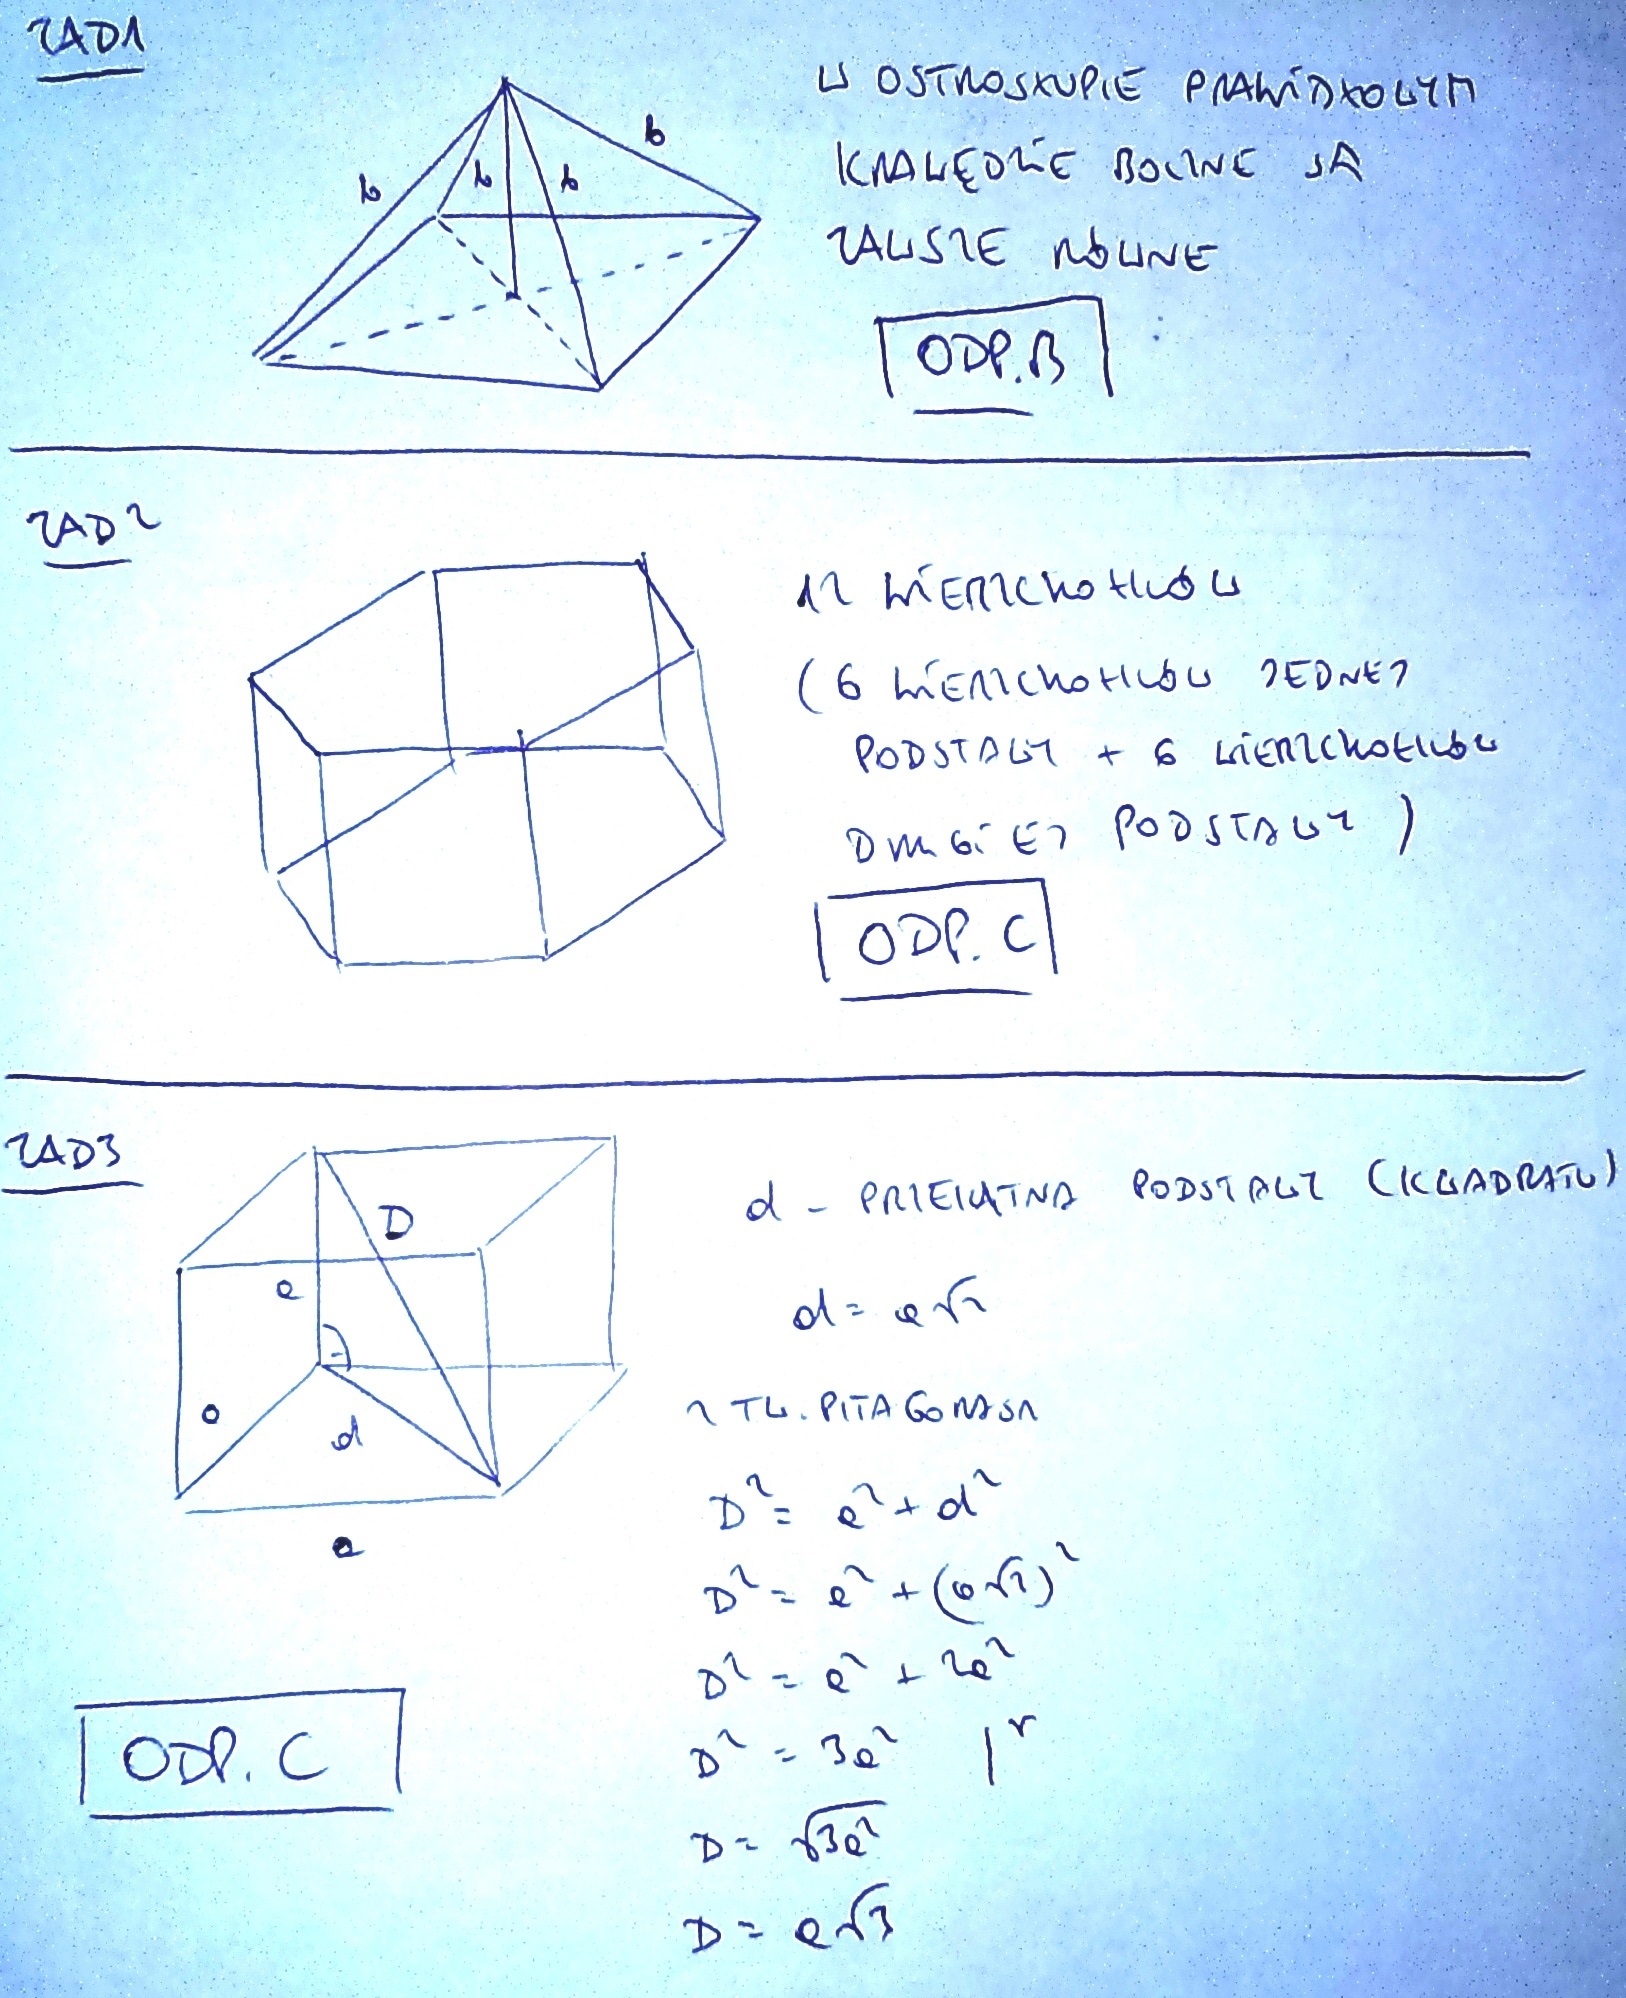 ZAD1
W OSTROSŁUPIE PRAWIDŁOWYM
KRAWĘDZIE BOCZNE SĄ
ZAWSZE RÓWNE
b b b b
ODP. B
ZAD2
12 WIERZCHOŁKÓW
(6 WIERZCHOŁKÓW JEDNEJ
PODSTAWY + 6 WIERZCHOŁKÓW
DRUGIEJ PODSTAWY)
ODP. C
ZAD3
D
a
a
d
a
d - PRZEKĄTNA PODSTAWY (KWADRATU)
d = a√2
Z TW. PITAGORASA
D² = a² + d²
D² = a² + (a√2)²
D² = a² + 2a²
D² = 3a² |√
D = √3a²
D = a√3
ODP. C